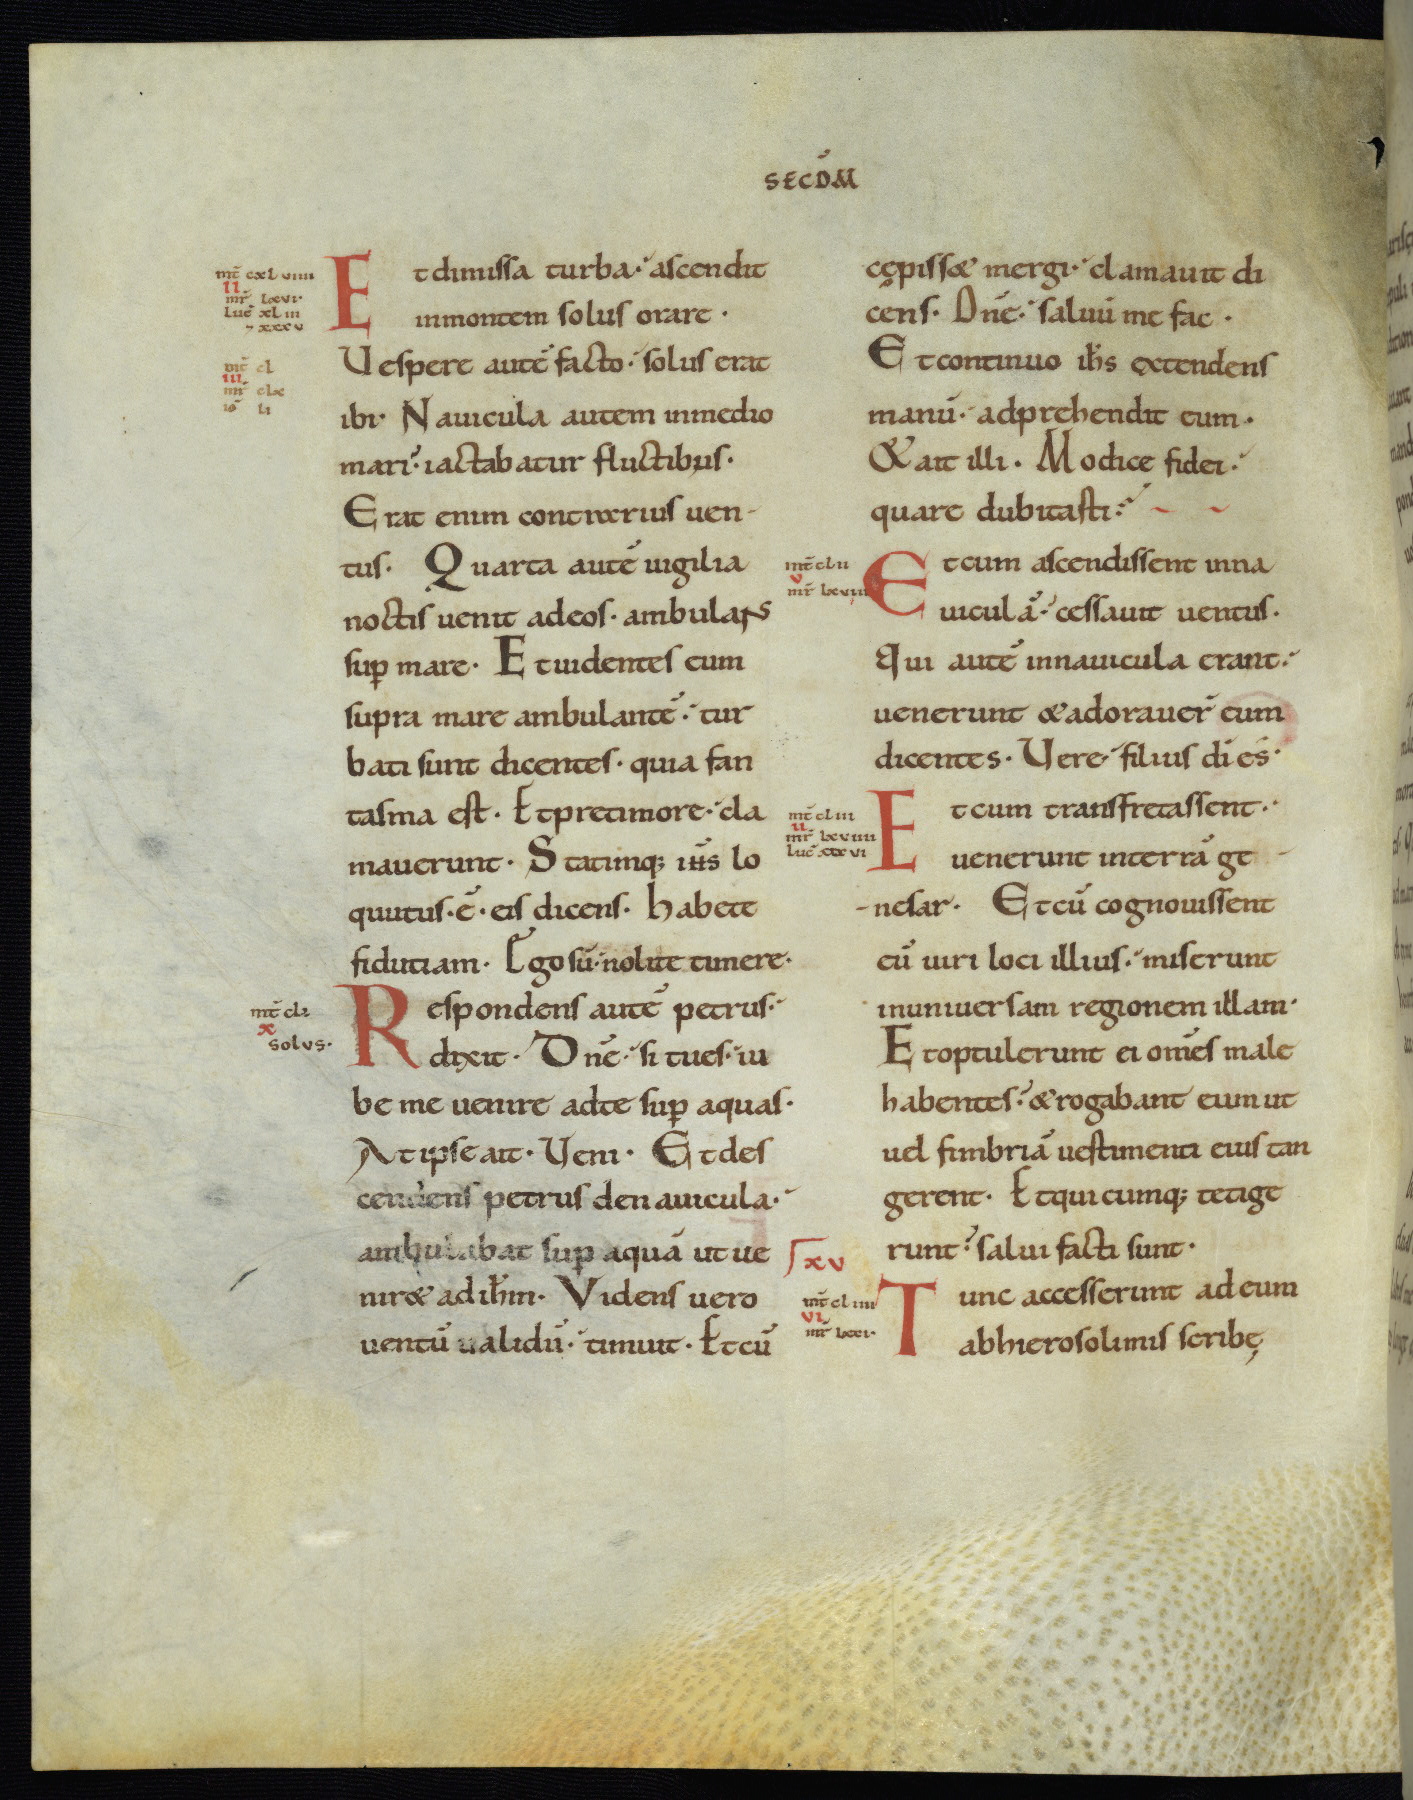 SECD̄M
mt̄ cxlviiii
II
mr̄ lxvi·
luc̄ xliii
7 xxxv
Et dimissa turba· ascendit
inmontem solus orare ·
Uespere autē facto· solus erat
mt̄ cl
III
mr̄ clx
io̅ li
ibi· Nauicula autem inmedio
mari· iactabatur fluctibus·
Erat enim contrarius uen-
tus· Quarta autē uigilia
noctis uenit adeos· ambulans
sup̄ mare· Et uidentes eum
supra mare ambulantē· tur
bati sunt dicentes· quia fan
tasma est· Et pretimore· cla
mauerunt· Statimq; ih̄s lo
quutus·ē·eis dicens· habete
fidutiam· Ego sū·nolite timere·
mt̄ cli
X
solus·
Respondens autē petrus·
dixit· Dn̄e· si tues· iu
be me uenire adte sup̄ aquas·
At ipse ait· Ueni· Et des
cendens petrus denauicula·
ambulabat sup̄ aquā ut ue
nir& ad ih̄m· Videns uero
uentū ualidū· timuit· Et cū
cępiss& mergi· clamauit di
cens· Dn̄e· saluū me fac ·
Et continuo ih̄s extendens
manū· adprehendit eum·
& ait illi· Modice fidei·
quare dubitasti·
mt̄ clii
V
mr̄ lxvii
Et cum ascendissent inna
uiculā· cessauit uentus·
Qui autē innauicula erant·
uenerunt &adorauer̄ eum
dicentes· Uere filius dī es·
mt̄ cliii
II
mr̄ lxviiii
luc̄ xxvi
Et cum transfretassent·
uenerunt interrā ge-
-nesar· Et cū cognouissent
eū uiri loci illius· miserunt
inuniuersam regionem illam·
Et optulerunt ei om̄es male
habentes· &rogabant eum ut
uel fimbriā uestimenti eius tan
gerent· Et quicumq; tetige
runt· salui facti sunt·
XV
mt̄ cliiii
VI
mr̄ lxxi·
Tunc accesserunt ad eum
abhierosolimis scribę